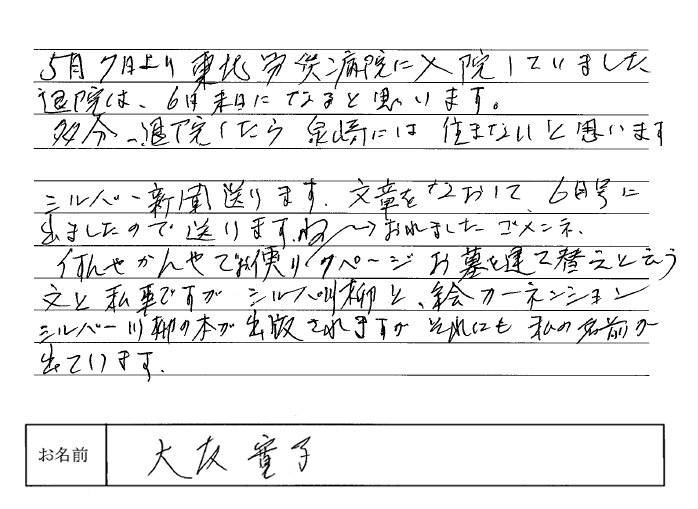 5月7日より東北労災病院に入院していました
退院は、6月末日になると思います。
多分、退院したら泉崎には住まないと思います
シルバー新聞送ります。文章をなおして、6月号に
出ましたので送りますね 〜→おくれましたゴメンネ、
なんやかんやでお便り ページ お墓を建て替えと云う
文と私事ですが シルバー川柳と、絵カーネンション
シルバー川柳の本が出版されますが それにも私の名前が
出ています。
お名前 大友寛子